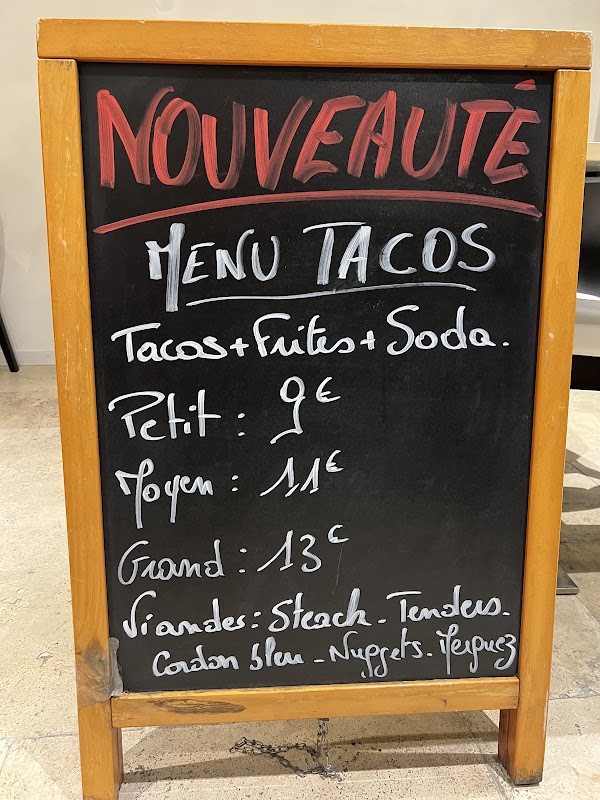 NOUVEAUTÉ
MENU TACOS
Tacos + Frites + Soda.
Petit : 9€
Moyen : 11€
Grand : 13€
Viandes : Steack - Tenders -
Cordon bleu - Nuggets - Merguez